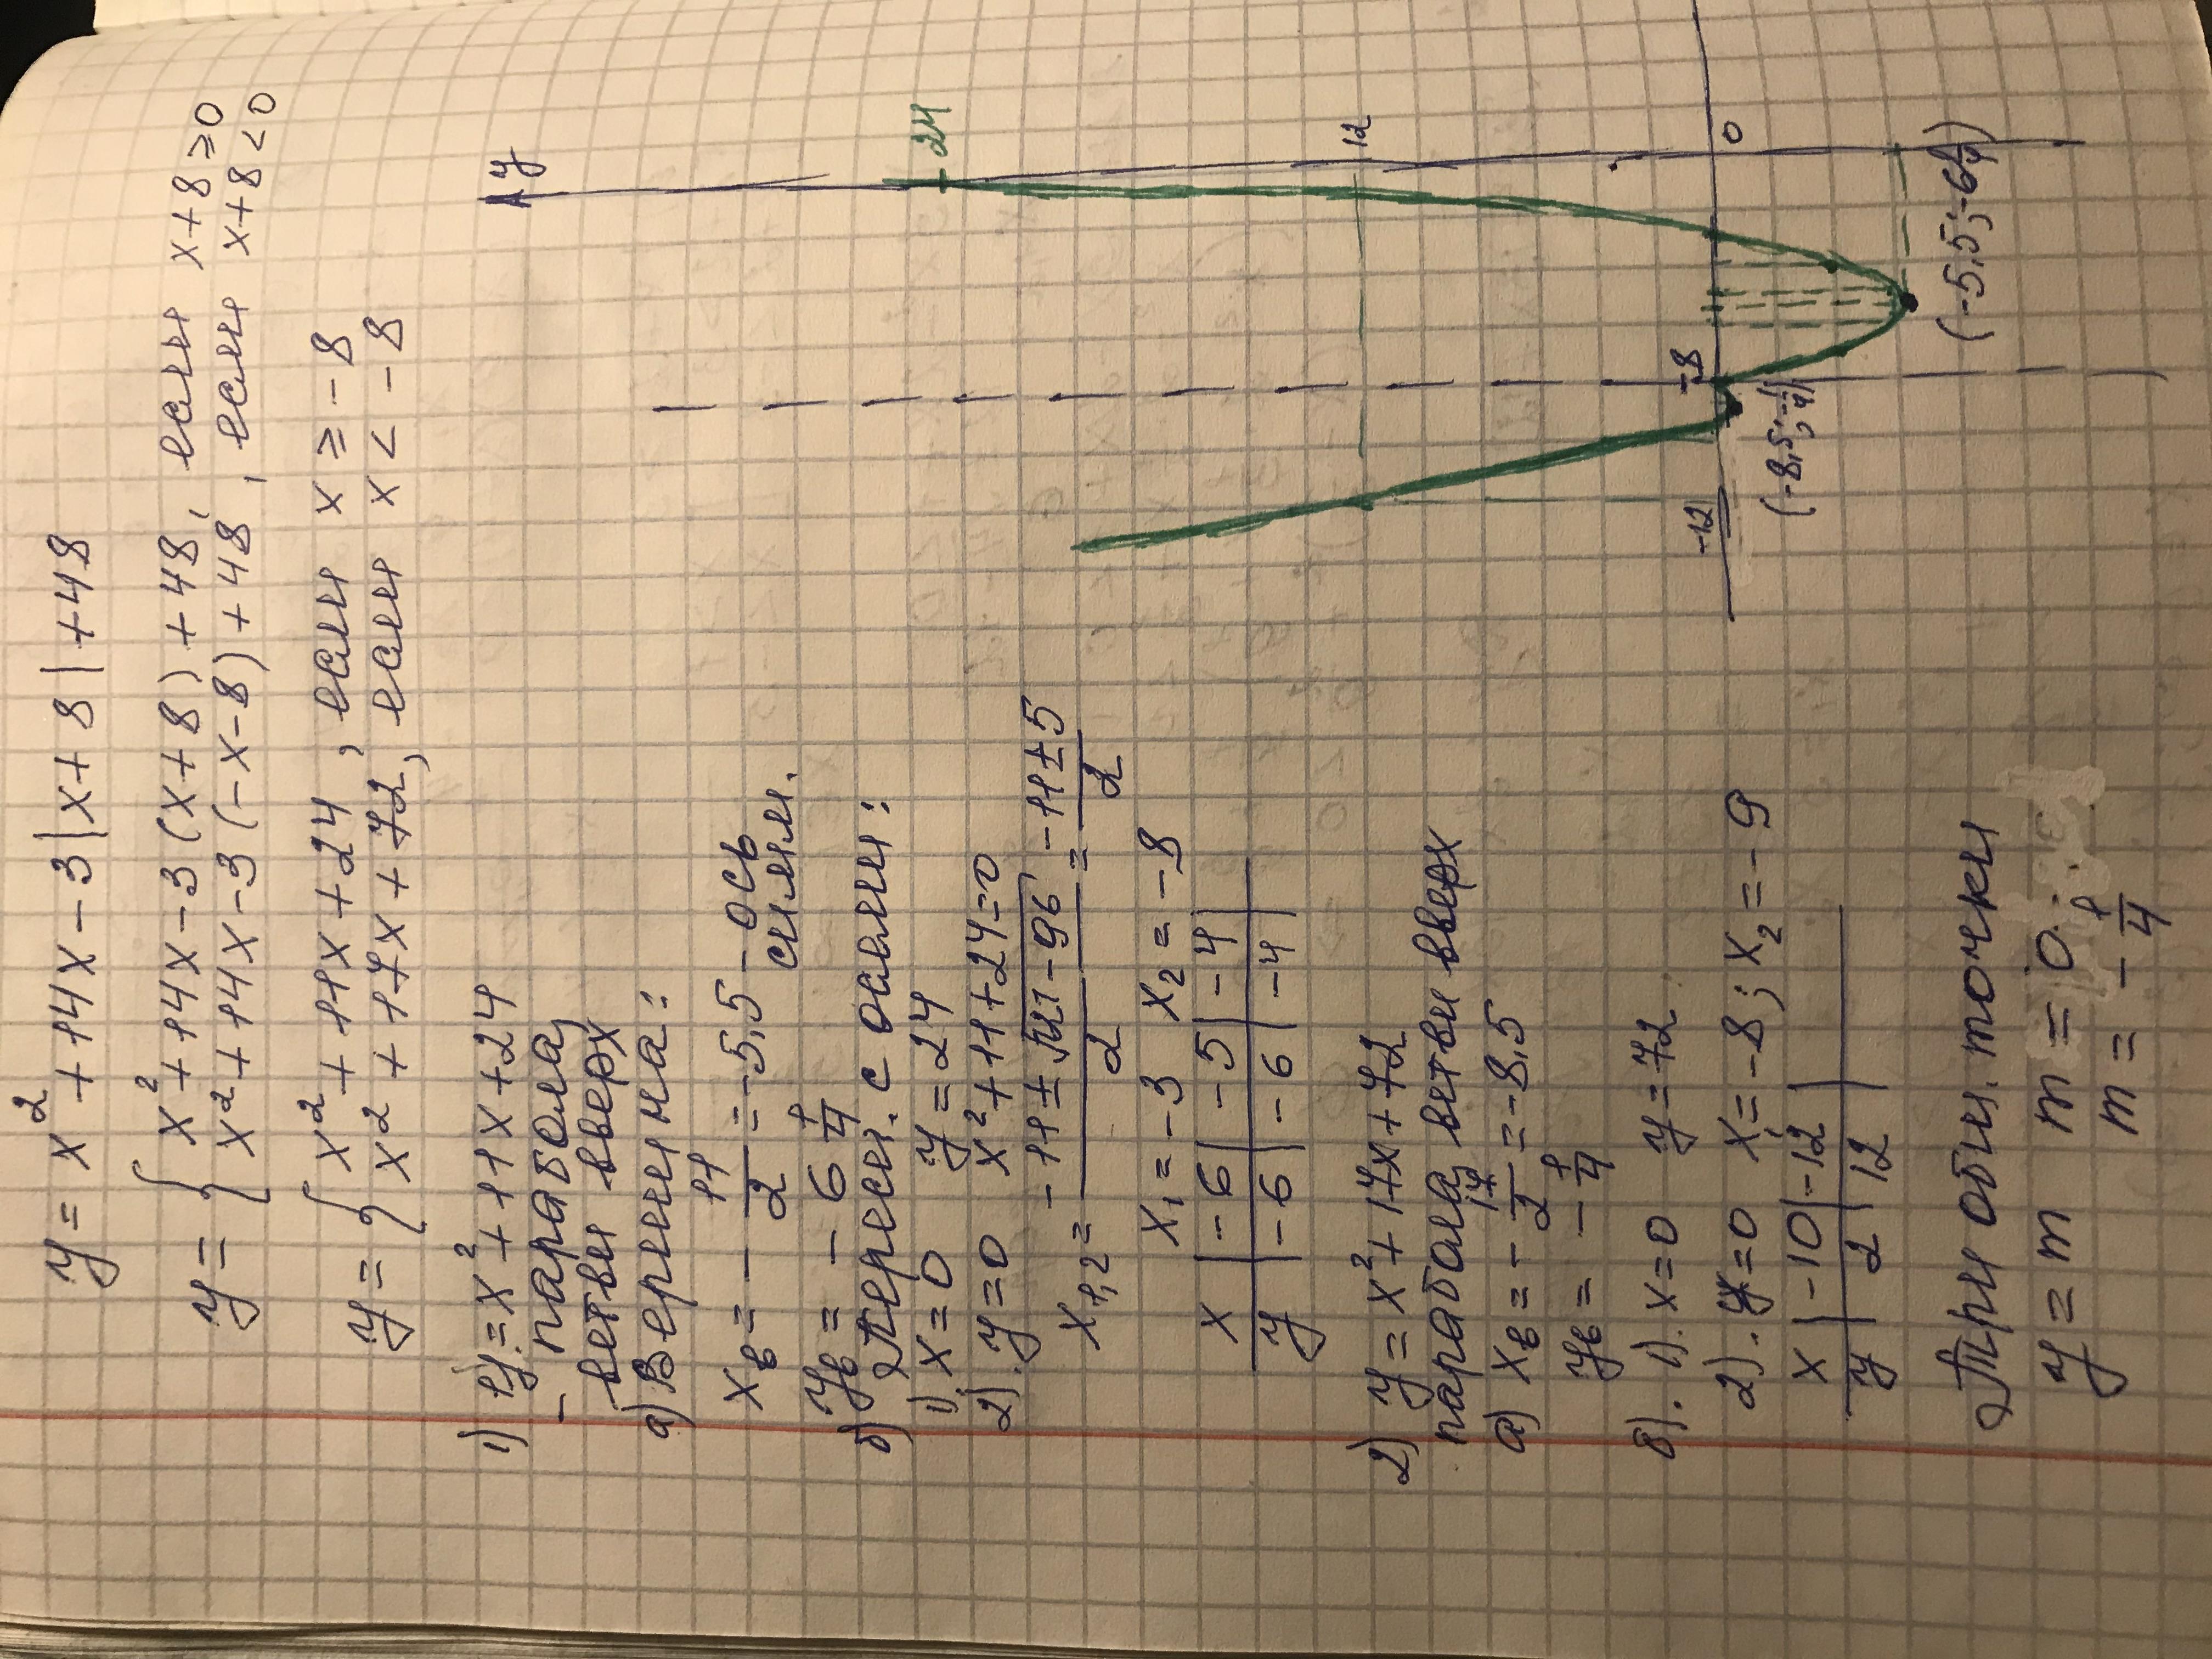 y = x² + 14x - 3|x+8| + 48
y = { x² + 14x - 3(x+8) + 48, если x+8 ≥ 0
x² + 14x - 3(-x-8) + 48, если x+8 < 0
y = { x² + 11x + 24, если x ≥ -8
x² + 17x + 72, если x < -8
1) y = x² + 11x + 24
- парабола,
ветви вверх
а) Вершина:
xв = - 11/2 = -5,5 - ось симм.
yв = - 6 1/4
б) пересеч. с осями:
1) x = 0 y = 24
2). y = 0 x² + 11 + 24 = 0
x1,2 = (-11 ± √121-96)/2 = (-11 ± 5)/2
x1 = -3 x2 = -8
x | -6 | -5 | -4 |
y | -6 | -6 | -4 |
2) y = x² + 17x + 72
парабола, ветви вверх
а) xв = - 17/2 = -8,5
yв = - 1/4
б). 1). x = 0 y = 72
2). y = 0 x1 = -8; x2 = -9
x | -10 | -12 |
y | 2 | 12
Три общ. точки
y = m m = 0;
m = - 1/4
y
24
12
0
-8
-12
(-8,5; -1/4)
(-5,5; -6 1/4)